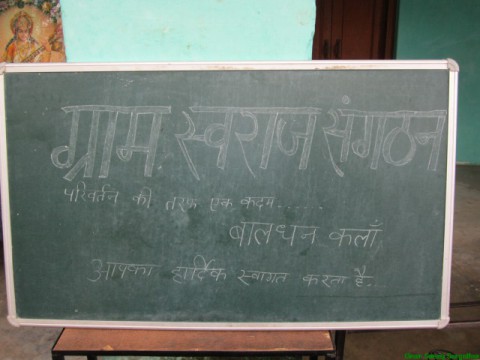 ग्राम स्वराज संगठन
परिवर्तन की तरफ एक कदम......
बालधन कलाँ
आपका हार्दिक स्वागत करता है.